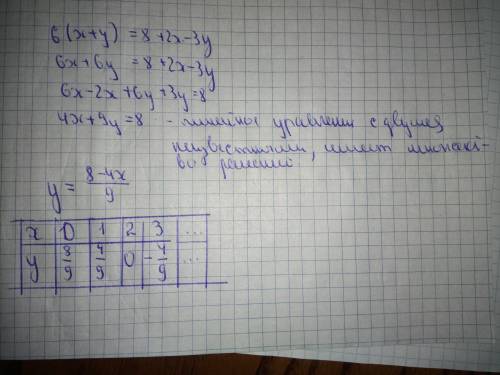 6(x+y) = 8+2x-3y
6x+6y = 8+2x-3y
6x-2x+6y+3y=8
4x+9y=8 - линейное уравнение с двумя
неизвестными, имеет множест-
во решений
y = \frac{8-4x}{9}
x 0 1 2 3 ...
y \frac{8}{9} \frac{4}{9} 0 -\frac{4}{9} ...